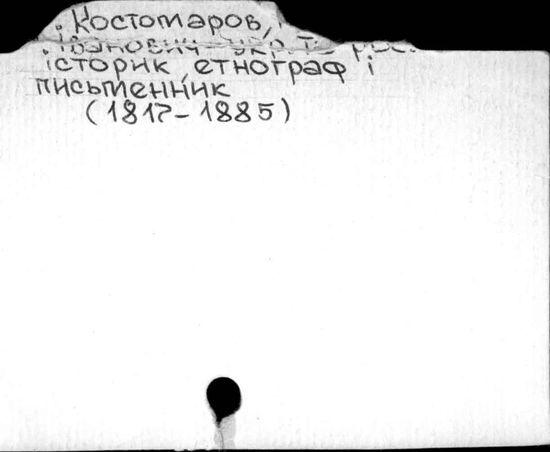 Костомаров,
Іванович укр. та рос.
історик, етнограф і
письменник
(1817-1885)